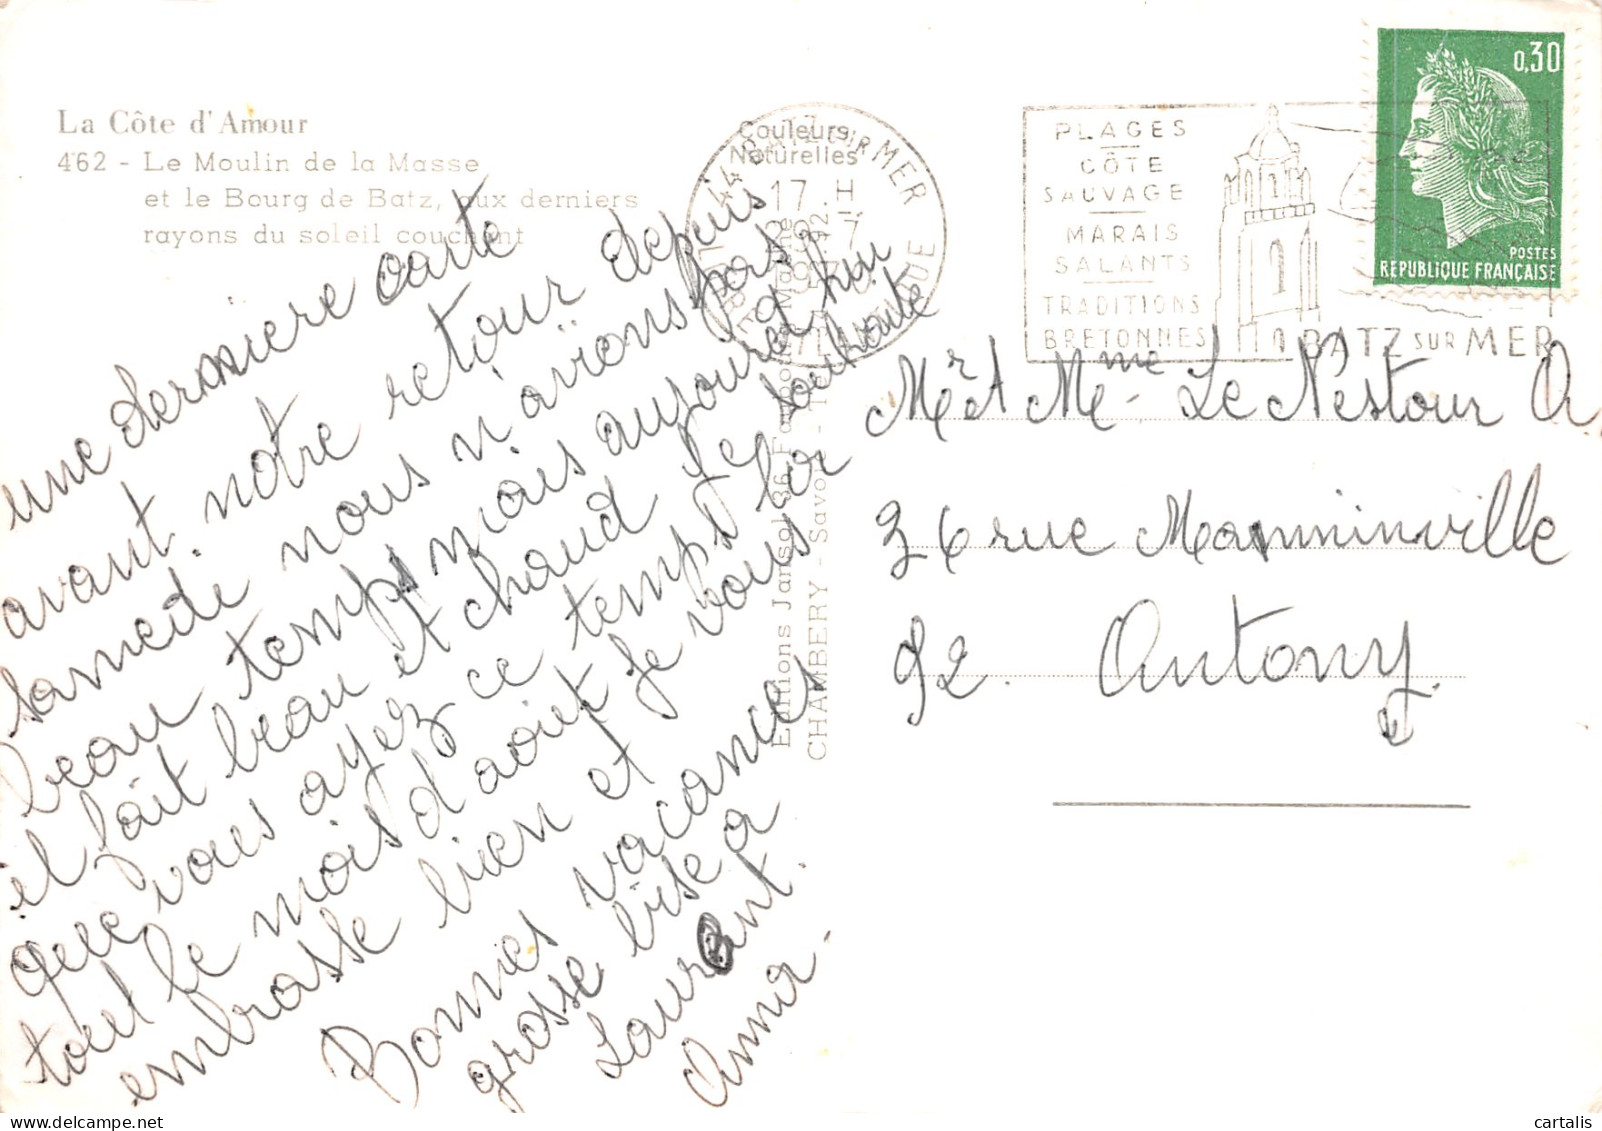 La Côte d'Amour
462 - Le Moulin de la Masse
et le Bourg de Batz, aux derniers
rayons du soleil couchant
une derniere carte
avant notre retour depuis
samedi nous n'avions pas
beau temps mais aujourd'hui
il fait beau et chaud je souhaite
que vous ayez ce temps là pour
tout le mois d'aout je vous
embrasse bien et
Bonnes vacances
grosse bise a
Laurent.
Anna.
Couleurs
Naturelles
Editions Jansol
CHAMBERY - Savoie
44 BATZ sur MER
17 H
PLAGES
CÔTE
SAUVAGE
MARAIS
SALANTS
TRADITIONS
BRETONNES
BATZ SUR MER
0,30
POSTES
REPUBLIQUE FRANÇAISE
Mr et Mme Le Nestour A
36 rue Mamminville
92. Antony.
cartalis